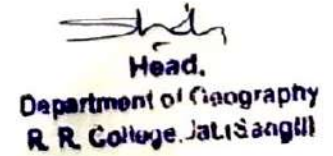 Head,
Department of Geography
R. R. College, Jat (Sangli)